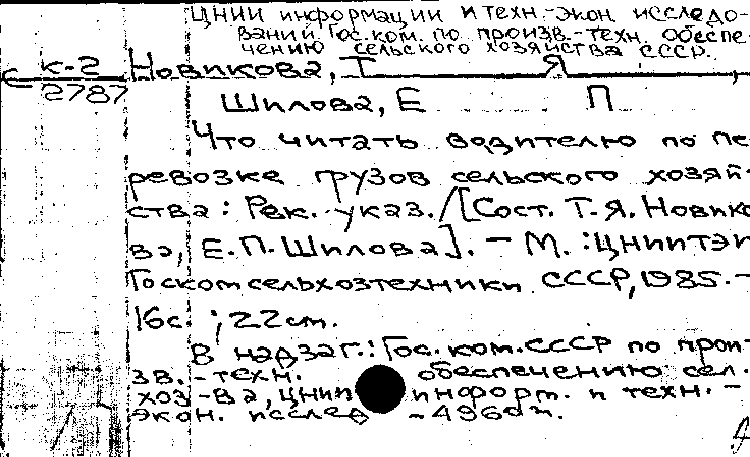 ЦНИИ информации и техн.-экон. исследо-
ваний Гос. ком. по произв.-техн. обеспе-
чению сельского хозяйства СССР.
с к-2 Новикова, Т Я
2787
Шилова, Е П
Что читать водителю по пе
ревозке грузов сельского хозяй-
ства: Рек. указ. / [Сост. Т.Я. Новико
ва, Е.П. Шилова]. - М. : ЦНИИТЭИ
Госкомсельхозтехники СССР, 1985. -
16с. ; 22см.
В надзаг.: Гос. ком. СССР по прои-
зв.-техн. обеспечению сел.
хоз-ва, ЦНИИ информ. и техн. -
экон. исслед -